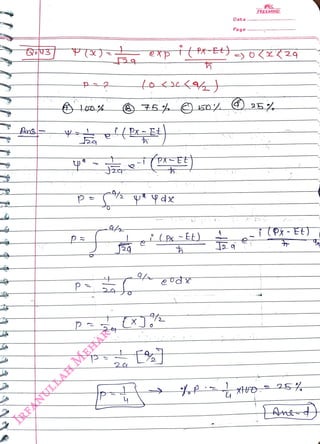 Date
Page
Q.43] Ψ(x) = 1/√2a exp i (Px-Et)/ħ => 0<x<2a
P = ? (0 <x< a/2)
(a) 100% (b) 75% (c) 50% (d) 25%
Ans - Ψ = 1/√2a e^i (Px-Et/ħ)
Ψ* = 1/√2a e^-i (Px-Et/ħ)
P = ∫₀^a/2 Ψ* Ψ dx
P = ∫₀^a/2 1/√2a e^i (Px-Et)/ħ 1/√2a e^-i (Px-Et)/ħ
P = 1/2a ∫₀^a/2 e⁰dx
P = 1/2a [x]₀^a/2
P = 1/2a [a/2]
P = 1/4 → % P = 1/4 x100 = 25%
Ans-d
IRFANULLAH MEHAR